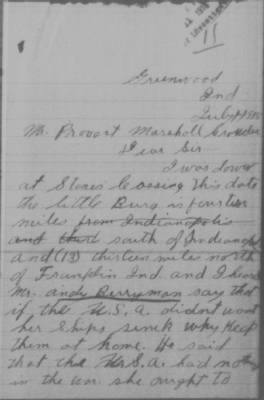 15
Greenwood
Ind
July
Mr. Provost Marshall Crowder
Dear Sir
I was down
at Stones Crossing this date
the little Burg is four
miles from Indianapolis
and south of Indianap
and (13) thirteen miles north
of Franklin Ind. and I heard
Mr. Andy Berryman say that
if the U.S.A. didn't want
her Ships sunk why keep
them at home. He said
that the U.S.A. had no
in the war she ought to